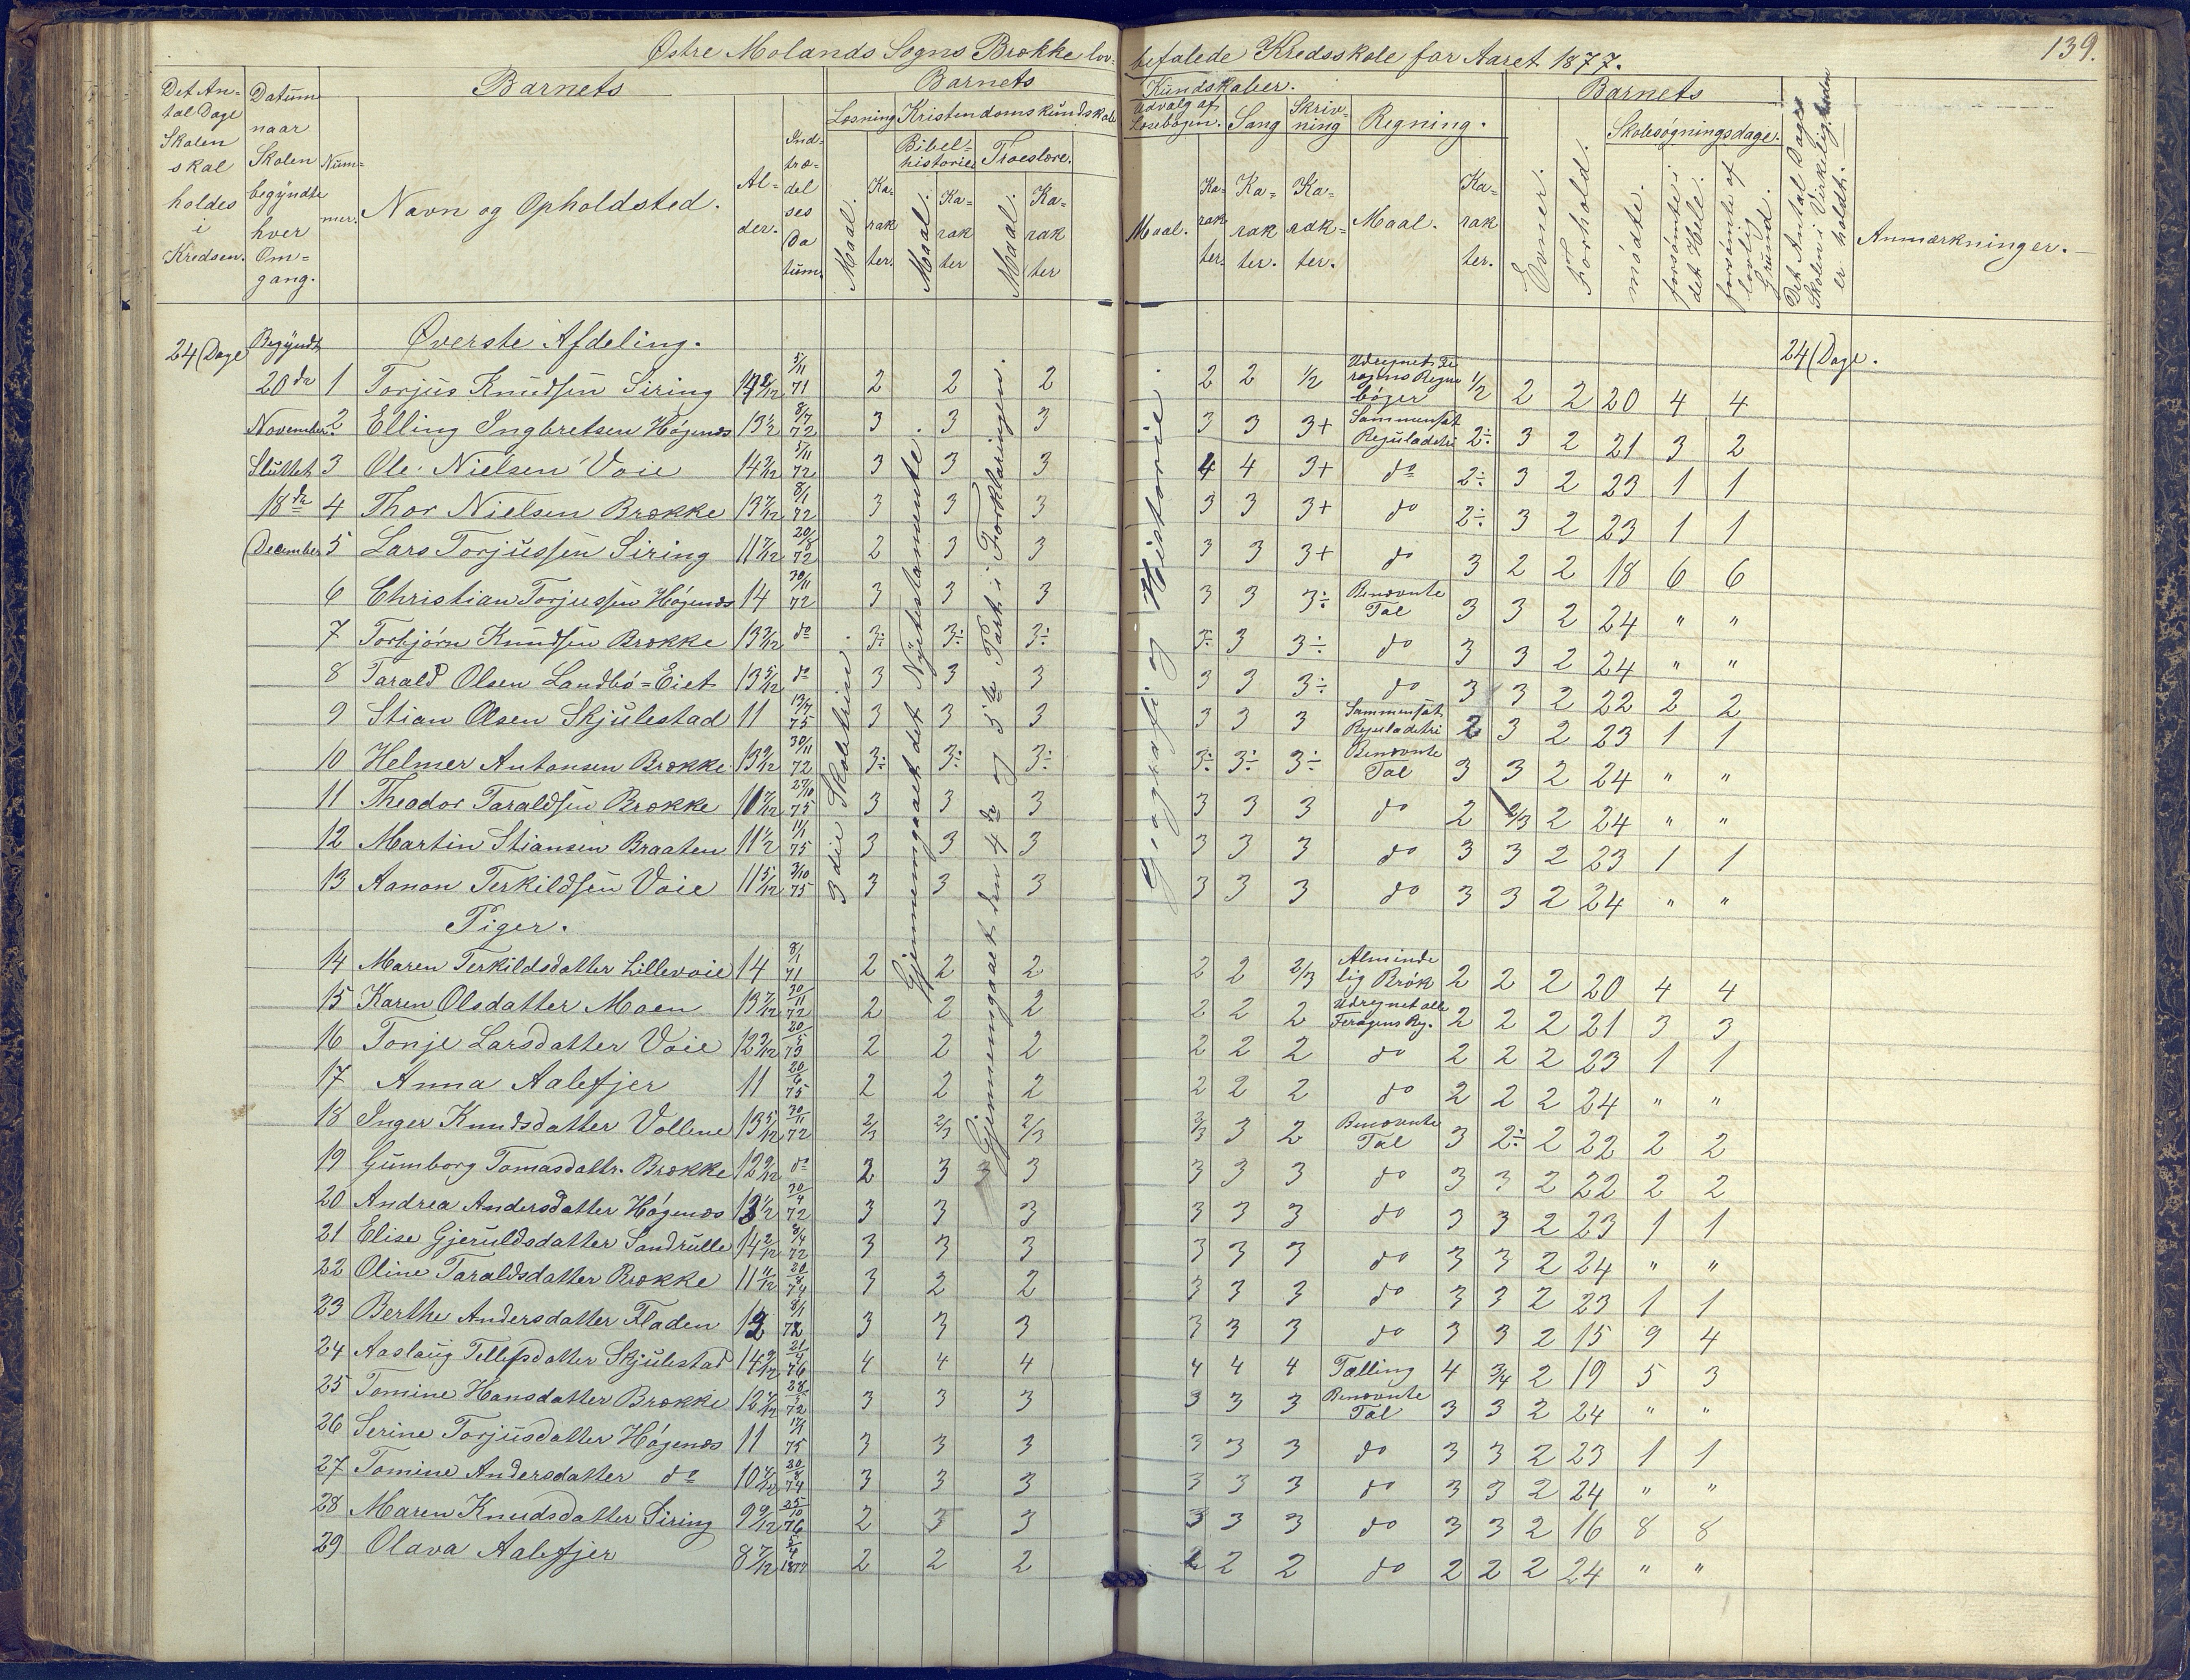 Østre Molands Sogns Brække lov-befalede Kredsskole for Aaret 1877.
139.
Det An-tal Dage Skolen skal holdes i Kredsen.
Datum naar Skolen begyndte hver Om-gang.
Num-mer.
Barnets
Navn og Opholdsted.
Al-der.
Ind-træ-del ses Da tum.
Barnets
Kundskaber.
Læsning
Maal.
Ka-rak ter.
Kristendomskundskab
Bibel-historie
Maal.
Ka-rak ter
Troeslære.
Maal.
Ka-rak ter
Udvalg af Læsebogen.
Maal.
Ka-rak ter.
Sang
Ka-rak ter.
Skriv-ning
Ka-rak-ter.
Regning.
Maal.
Ka-rak ter.
Barnets
Evner.
Forhold.
Skolesøgningsdage.
mødte.
forsømte i det Hele.
forsømte af lovlig Grund.
Det Antal Dage Skolen i Virkeligheden er holdt.
Anmærkninger.
24 Dage Begyndt Øverste Afdeling. 24 Dage.
20de 1 Torjus Knudsen Siring 14 2/12 5/11 71 2 2 2 2 2 1/2 Udregnet Fe ragens Regne bøger 1/2 2 2 20 4 4
November 2 Elling Ingbretsen Høgenæs 13 1/2 8/7 72 3 3 3 3 3 3+ Sammensat Reguladetri 2÷ 3 2 21 3 2
Sluttet 3 Ole Nielsen Voie 14 2/12 5/11 72 3 3 3 4 4 3+ do 2÷ 3 2 23 1 1
18de 4 Thor Nielsen Brække 13 7/12 8/1 72 3 3 3 3 3 3+ do 2÷ 3 2 23 1 1
December 5 Lars Torjussen Siring 11 7/12 20/8 72 2 3 3 3 3 3+ do 3 2 2 18 6 6
6 Christian Torjussen Høgenæs 14 30/11 72 3 3 3 3 3 3÷ Benævnte Tal 3 3 2 24 " "
7 Torbjørn Knudsen Brække 13 2/12 do 3÷ 3÷ 3÷ 3÷ 3 3÷ do 3 3 2 24 " "
8 Tarald Olsen Landbø=Eiet 13 5/12 do 3 3 3 3 3 3÷ do 3 3 2 22 2 2
9 Stian Olsen Skjulestad 11 13/7 75 3 3 3 3 3 3 Sammensat Reguladetri 2 3 2 23 1 1
10 Helmer Antonsen Brække 13 9/12 30/11 72 3÷ 3÷ 3÷ 3÷ 3÷ 3÷ Benævnte Tal 3 3 2 24 " "
11 Theodor Taraldsen Brække 10 7/12 27/10 75 3 3 3 3 3 3 do 2 2/3 2 24 " "
12 Martin Stiansen Braaten 11 1/2 11/1 75 3 3 3 3 3 3 do 3 3 2 23 1 1
13 Aanon Terkildsen Voie 11 5/12 3/10 75 3 3 3 3 3 3 do 3 3 2 24 " "
3die Skoletrin.
Gjennemgaaet det Nyetestamente.
Gjennemgaaet den 4de og 5te Part i Forklaringen.
Geografi og Historie.
Piger.
14 Maren Terkildsdatter Lillevoie 14 8/1 71 2 2 2 2 2 2/3 Alminde lig Brøk 2 2 2 20 4 4
15 Karen Olsdatter Moen 13 7/12 30/11 72 2 2 2 2 2 2 Udregnet alle Feragens Reg. 2 2 2 21 3 3
16 Tonje Larsdatter Voie 12 3/12 20/5 73 2 2 2 2 2 2 do 2 2 2 23 1 1
17 Anna Aalefjer 11 20/6 75 2 2 2 2 2 2 do 2 2 2 24 " "
18 Inger Knudsdatter Vollene 13 5/12 30/11 72 2/3 2/3 2/3 2/3 3 2 Benævnte Tal 3 2÷ 2 22 2 2
19 Gumborg Tomasdattr. Brække 12 9/12 do 2 3 3 3 3 3 do 3 3 2 22 2 2
20 Andrea Andersdatter Høgenæs 13 1/2 30/4 72 3 3 3 3 3 3 do 3 3 2 23 1 1
21 Elise Gjeruldsdatter Sandrulle 14 2/12 8/4 72 3 3 3 3 3 3 do 3 3 2 24 " "
22 Oline Taraldsdatter Brække 11 11/12 20/8 74 3 2 2 3 3 3 do 3 3 2 23 1 1
23 Berthe Andersdatter Fladen 13 8/1 72 3 3 3 3 3 3 do 3 3 2 15 9 4
24 Aaslaug Tellefsdatter Skjulestad 14 9/12 21/4 76 4 4 4 4 4 4 Tælling 4 3/4 2 19 5 3
25 Tomine Hansdatter Brække 12 7/12 28/5 72 3 3 3 3 3 3 Benævnte Tal 3 3 2 24 " "
26 Serine Torjusdatter Høgenæs 11 17/1 75 3 3 3 3 3 3 do 3 3 2 23 1 1
27 Tomine Andersdatter do 10 7/12 20/8 74 3 3 3 3 3 3 do 3 3 2 24 " "
28 Maren Knudsdatter Siring 9 9/12 25/10 76 2 3 3 3 3 3 do 3 3 2 16 8 8
29 Olava Aalefjer 8 7/12 5/4 1877 2 2 2 2 2 2 do 2 2 2 24 " "